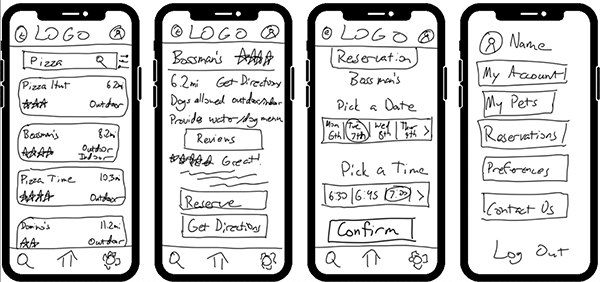 LOGO
Pizza
Pizza Hut 6.2mi
Outdoor
Bossman's 8.2mi
Outdoor
Indoor
Pizza Time 10.3mi
Outdoor
Domino's 11.2mi
Outdoor
LOGO
Bossman's
6.2mi Get Directions
Dogs allowed outdoor/indoor
Provides water/dog menu
Reviews
Great!
Reserve
Get Directions
LOGO
Reservation
Bossman's
Pick a Date
Mon Tue Wed Thur
6th 7th 8th 9th >
Pick a Time
6:30 6:45 7:00 >
Confirm
Name
My Account
My Pets
Reservations
Preferences
Contact Us
Log Out